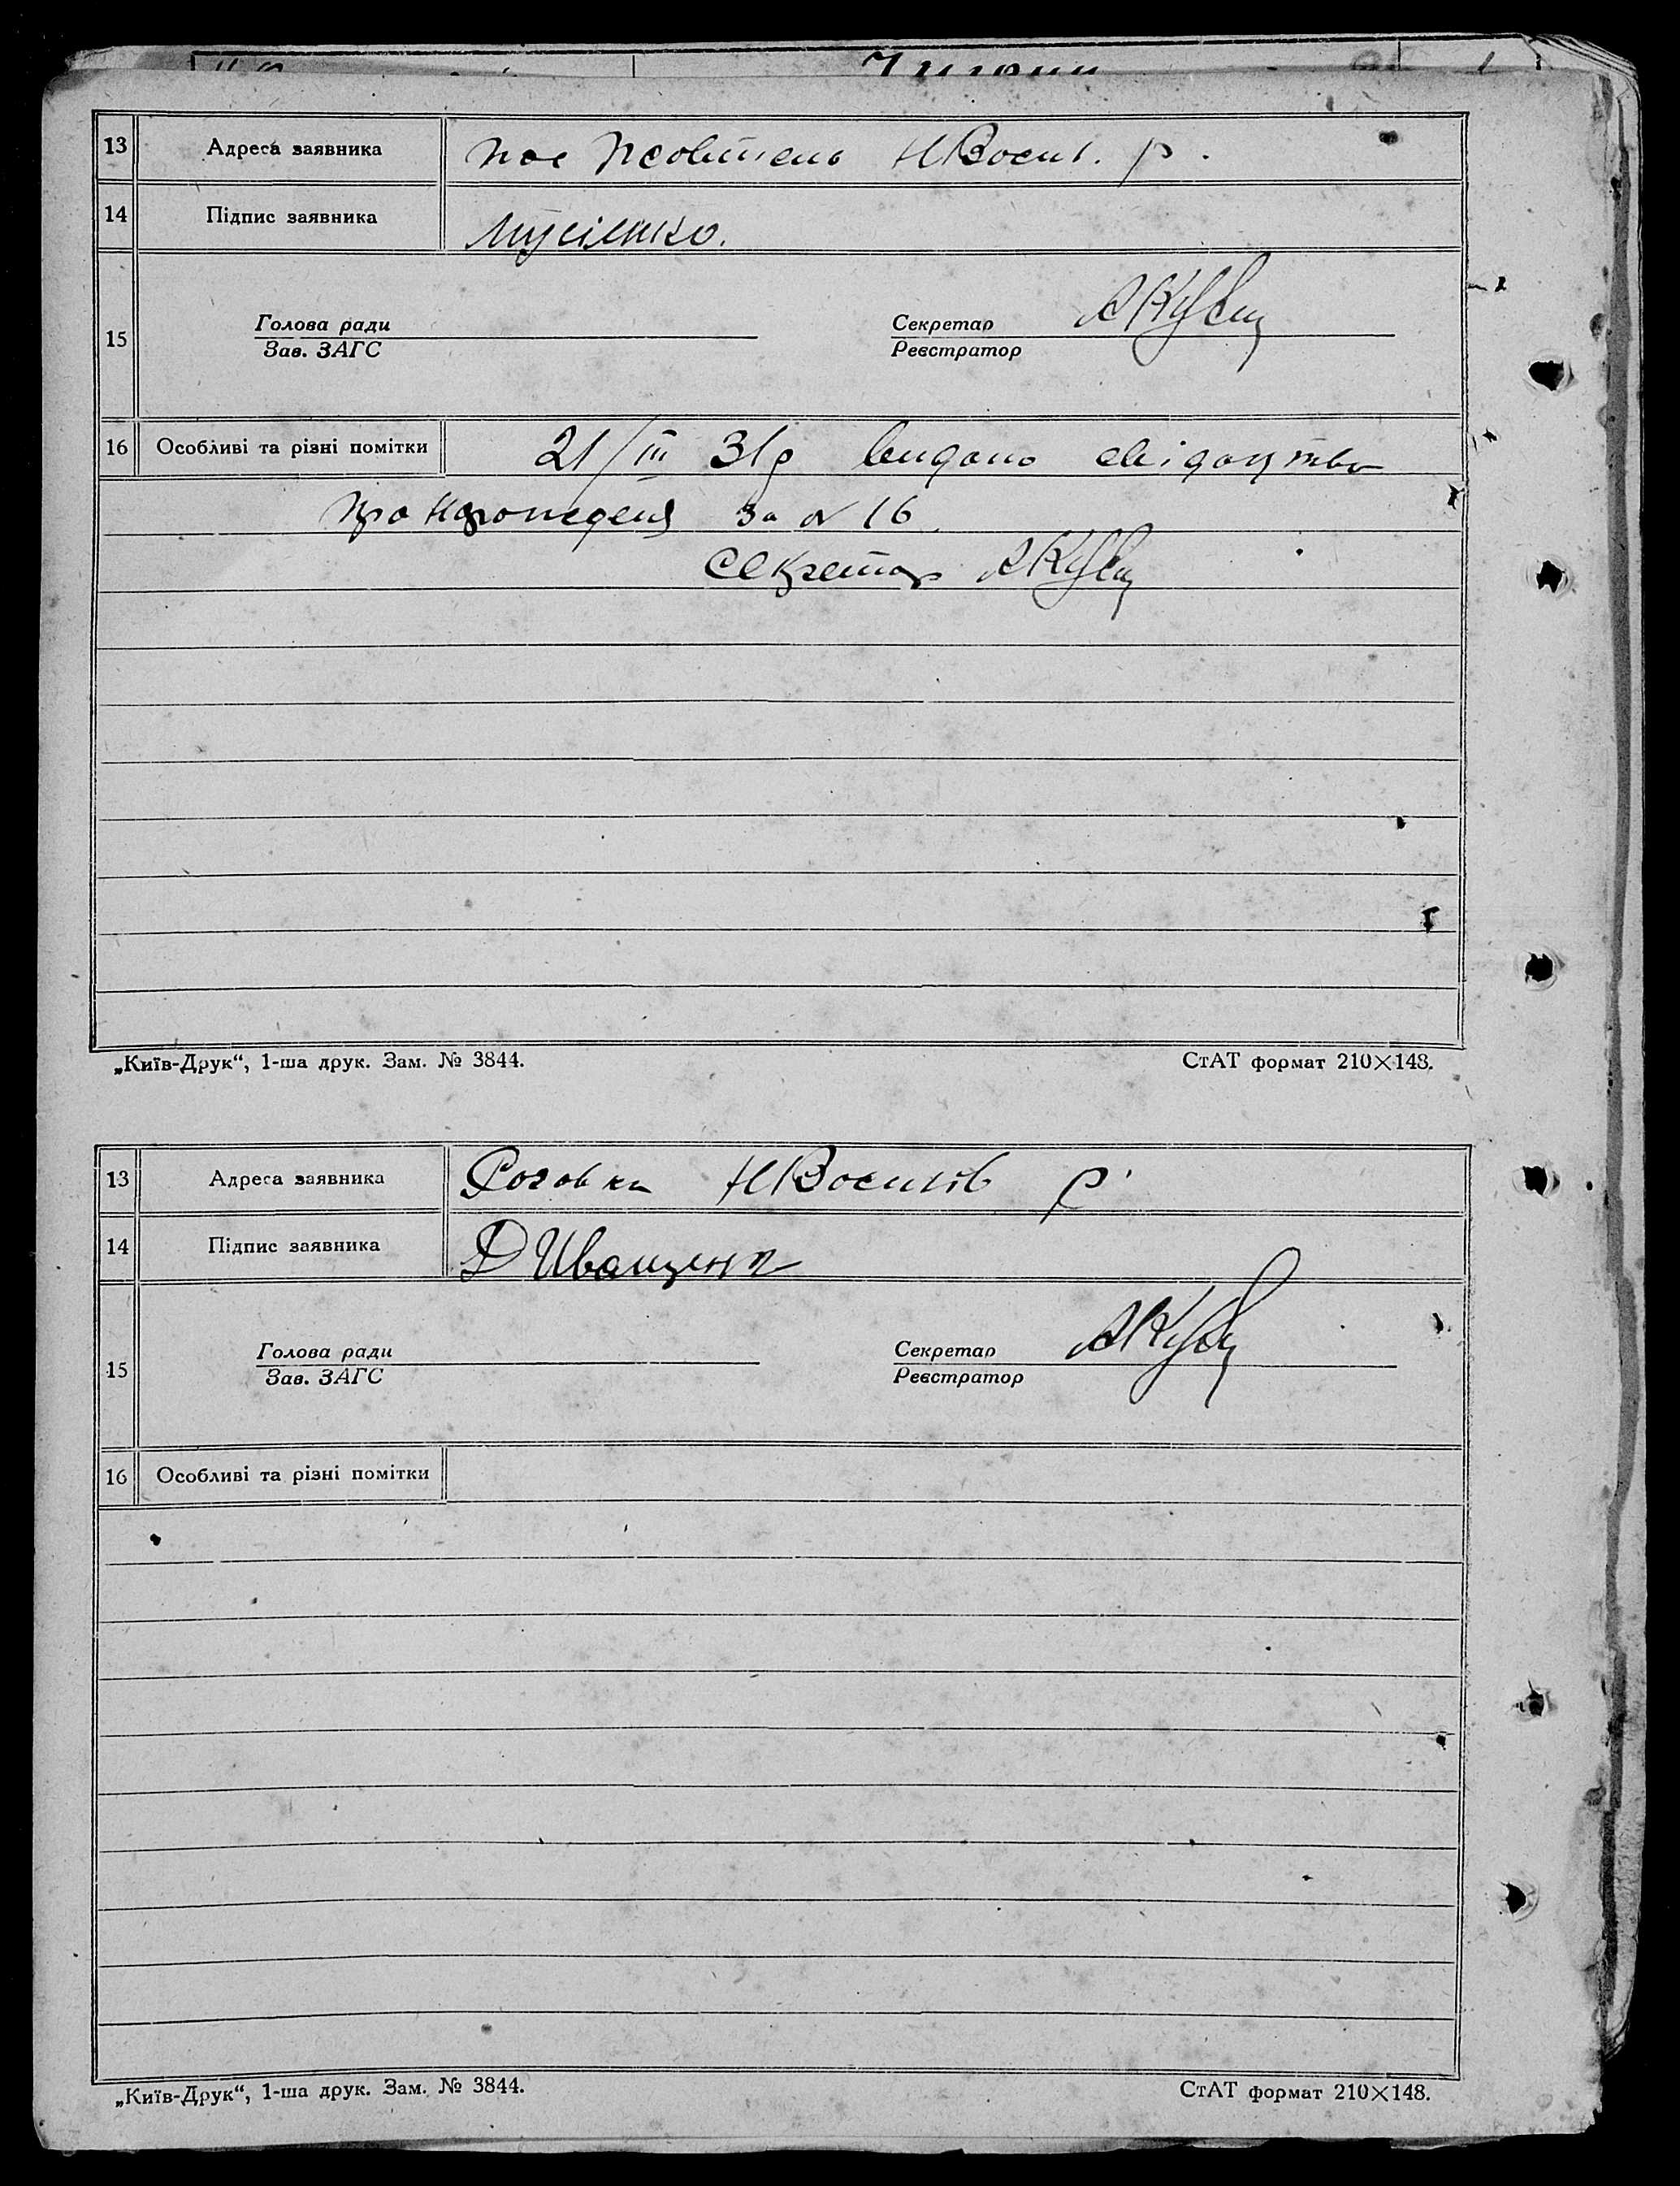 13 Адреса заявника пос Жовтень НВасил. р.
14 Підпис заявника Мусіенко.
15 Голова ради Секретар
Зав. ЗАГС Реєстратор
16 Особливі та різні помітки 21/III 31р видано свідоцтво
про народження за № 16
секретар
„Київ-Друк“, 1-ша друк. Зам. № 3844. СтАТ формат 210×148.
13 Адреса заявника НВасилів р
14 Підпис заявника Д Иващенк
15 Голова ради Секретар
Зав. ЗАГС Реєстратор
16 Особливі та різні помітки
„Київ-Друк“, 1-ша друк. Зам. № 3844. СтАТ формат 210×148.